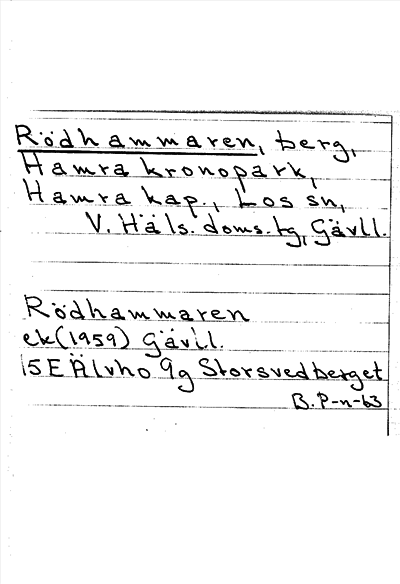 Rödhammaren, berg,
Hamra kronopark,
Hamra kap., Los sn,
V. Häls. doms.tg, Gävll.
Rödhammaren
ek(1959) Gävll.
15E Älvho 9g Storsvedberget
B. P-n-63